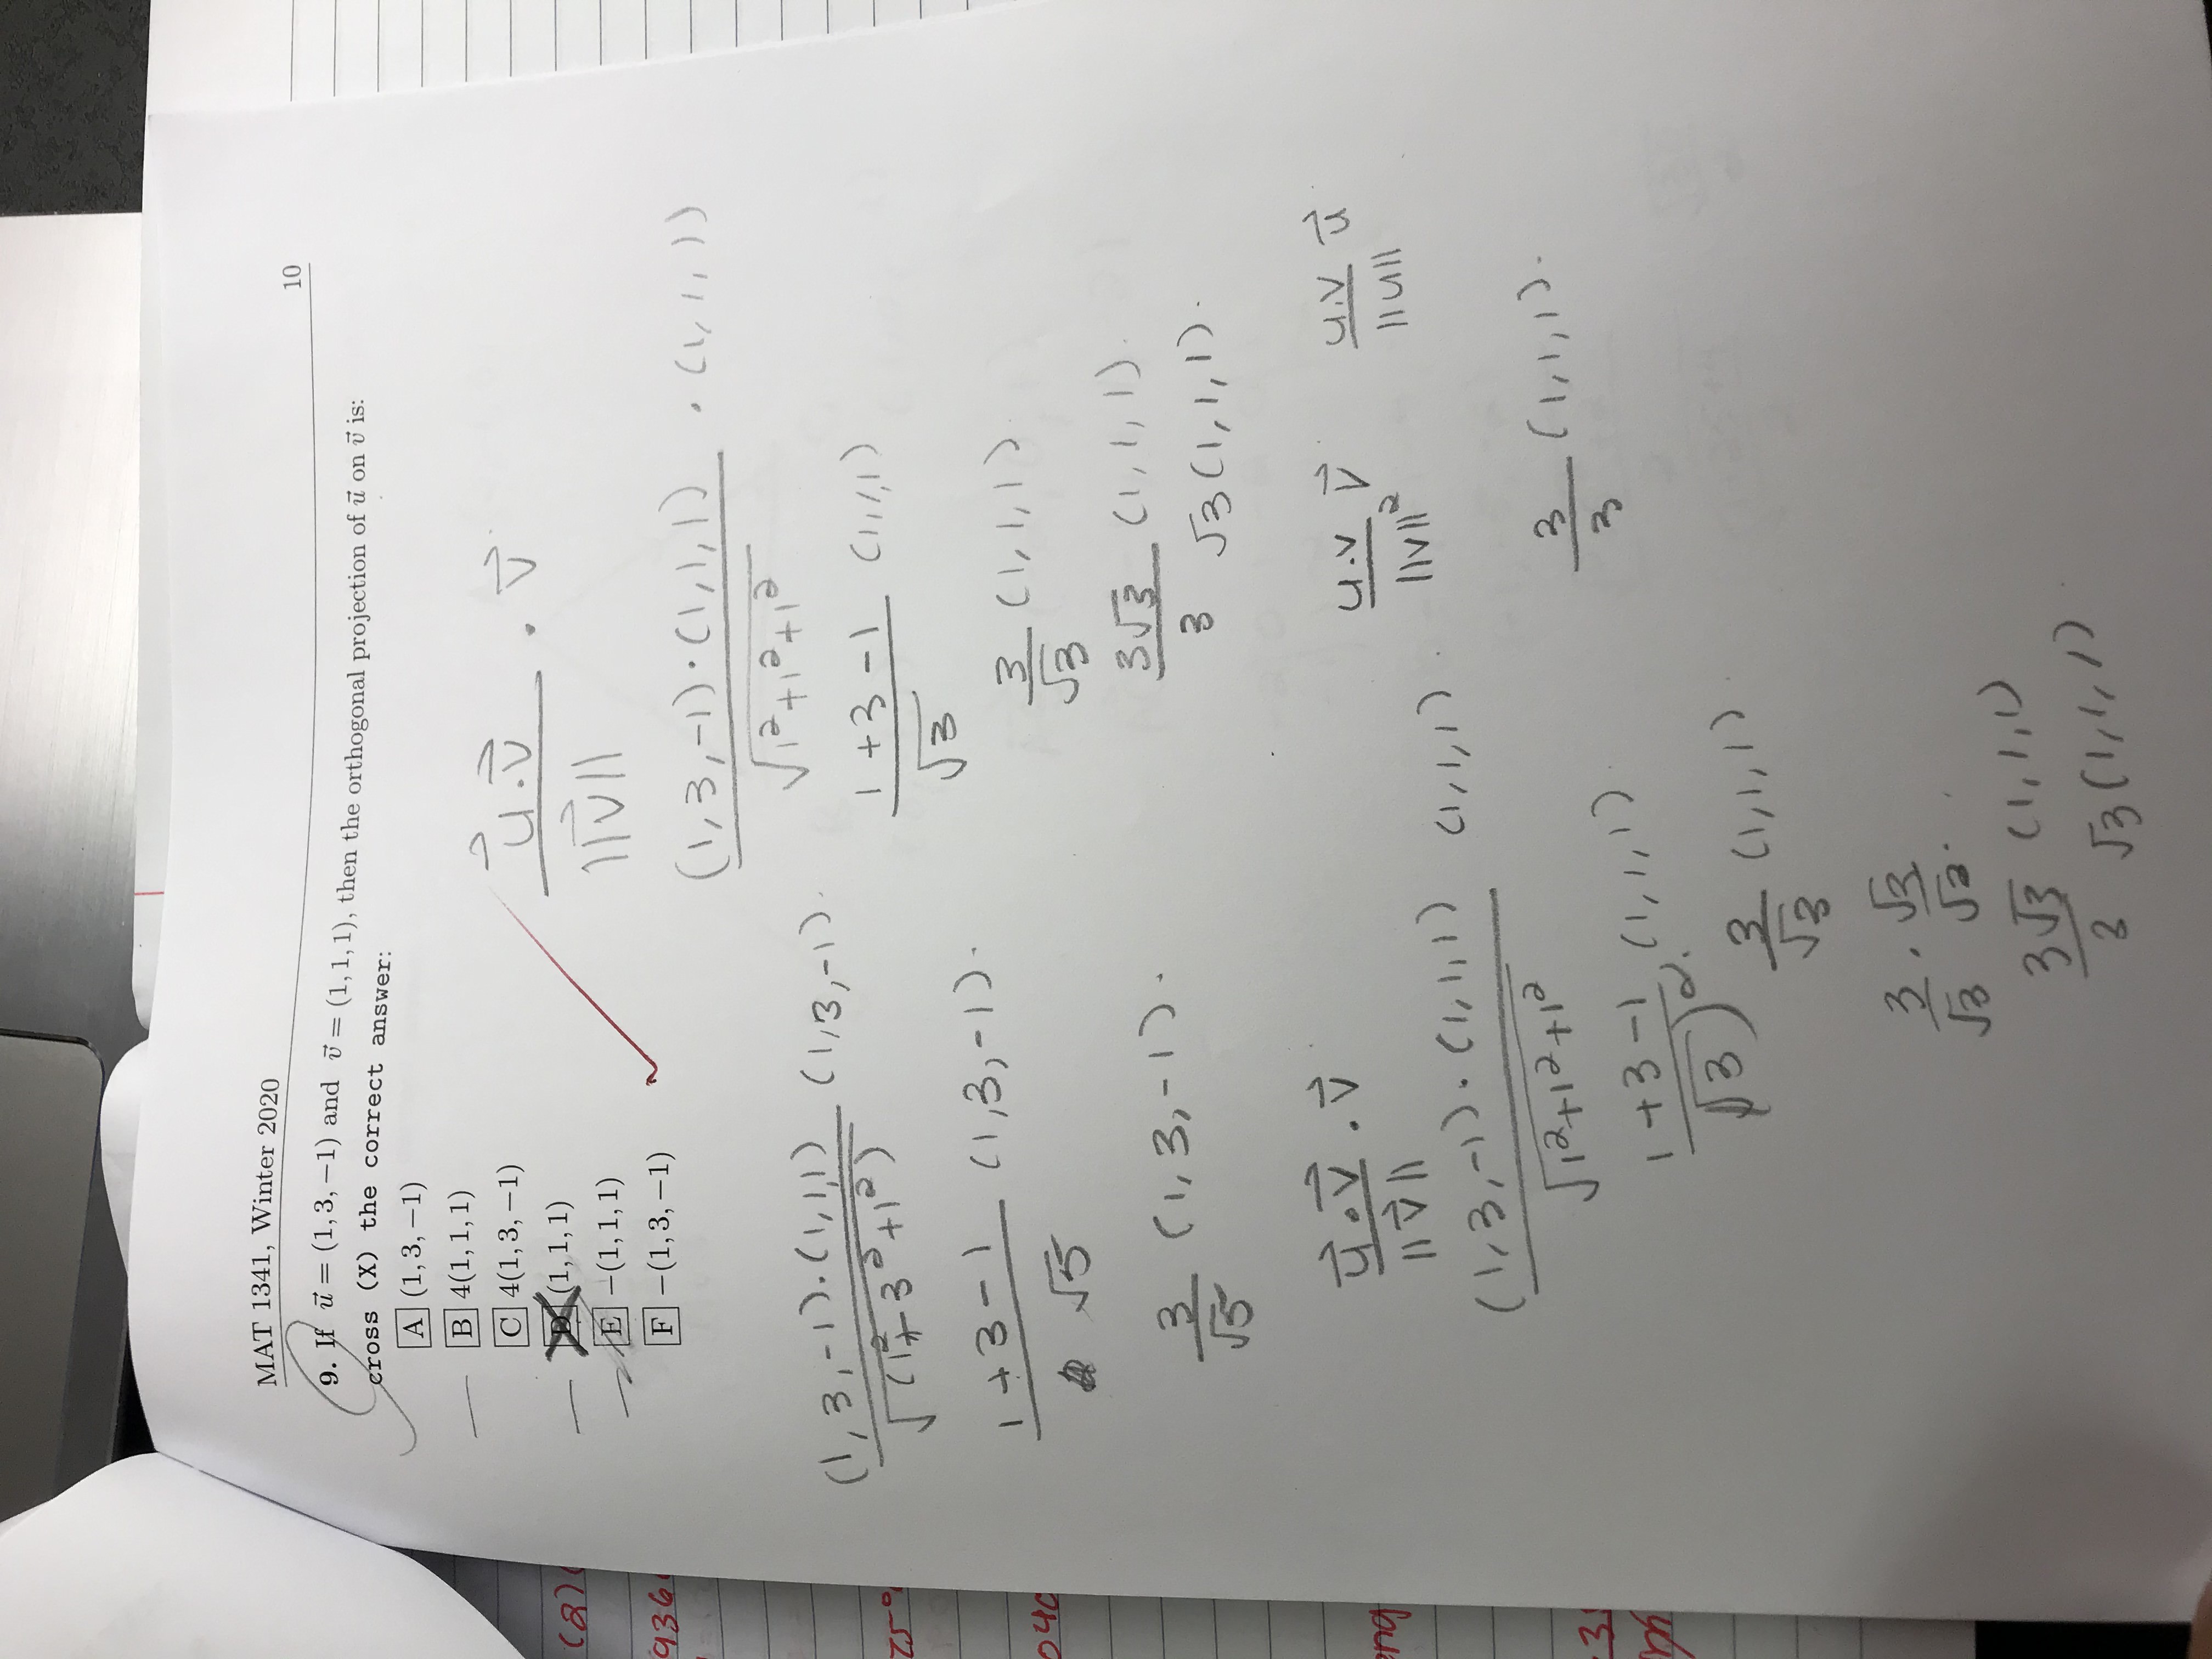 MAT 1341, Winter 2020
10
9. If u⃗ = (1, 3, −1) and v⃗ = (1, 1, 1), then the orthogonal projection of u⃗ on v⃗ is:
cross (X) the correct answer:
A (1, 3, −1)
B 4(1, 1, 1)
C 4(1, 3, −1)
D (1, 1, 1)
E −(1, 1, 1)
F −(1, 3, −1)
u⃗·v⃗ / ||v⃗|| · v⃗
(1,3,-1)·(1,1,1) / √1²+1²+1² · (1,1,1)
1+3-1 / √3 (1,1,1)
3/√3 (1,1,1)
3√3/3 (1,1,1).
√3(1,1,1).
(1,3,-1)·(1,1,1) / √(1²+3²+1²) (1,3,-1).
1+3-1 / √5 (1,3,-1).
3/√5 (1,3,-1).
u⃗·v⃗ / ||v⃗|| · v⃗
(1,3,-1)·(1,1,1) / √1²+1²+1² (1,1,1)
1+3-1 / √3)² (1,1,1)
3/√3 (1,1,1)
3/√3 · √3/√3
3√3/3 (1,1,1)
√3(1,1,1)
u·v / ||v||² v⃗
u·v / ||u|| u⃗
3/3 (1,1,1).
(2)
936
75%
040
ong
3